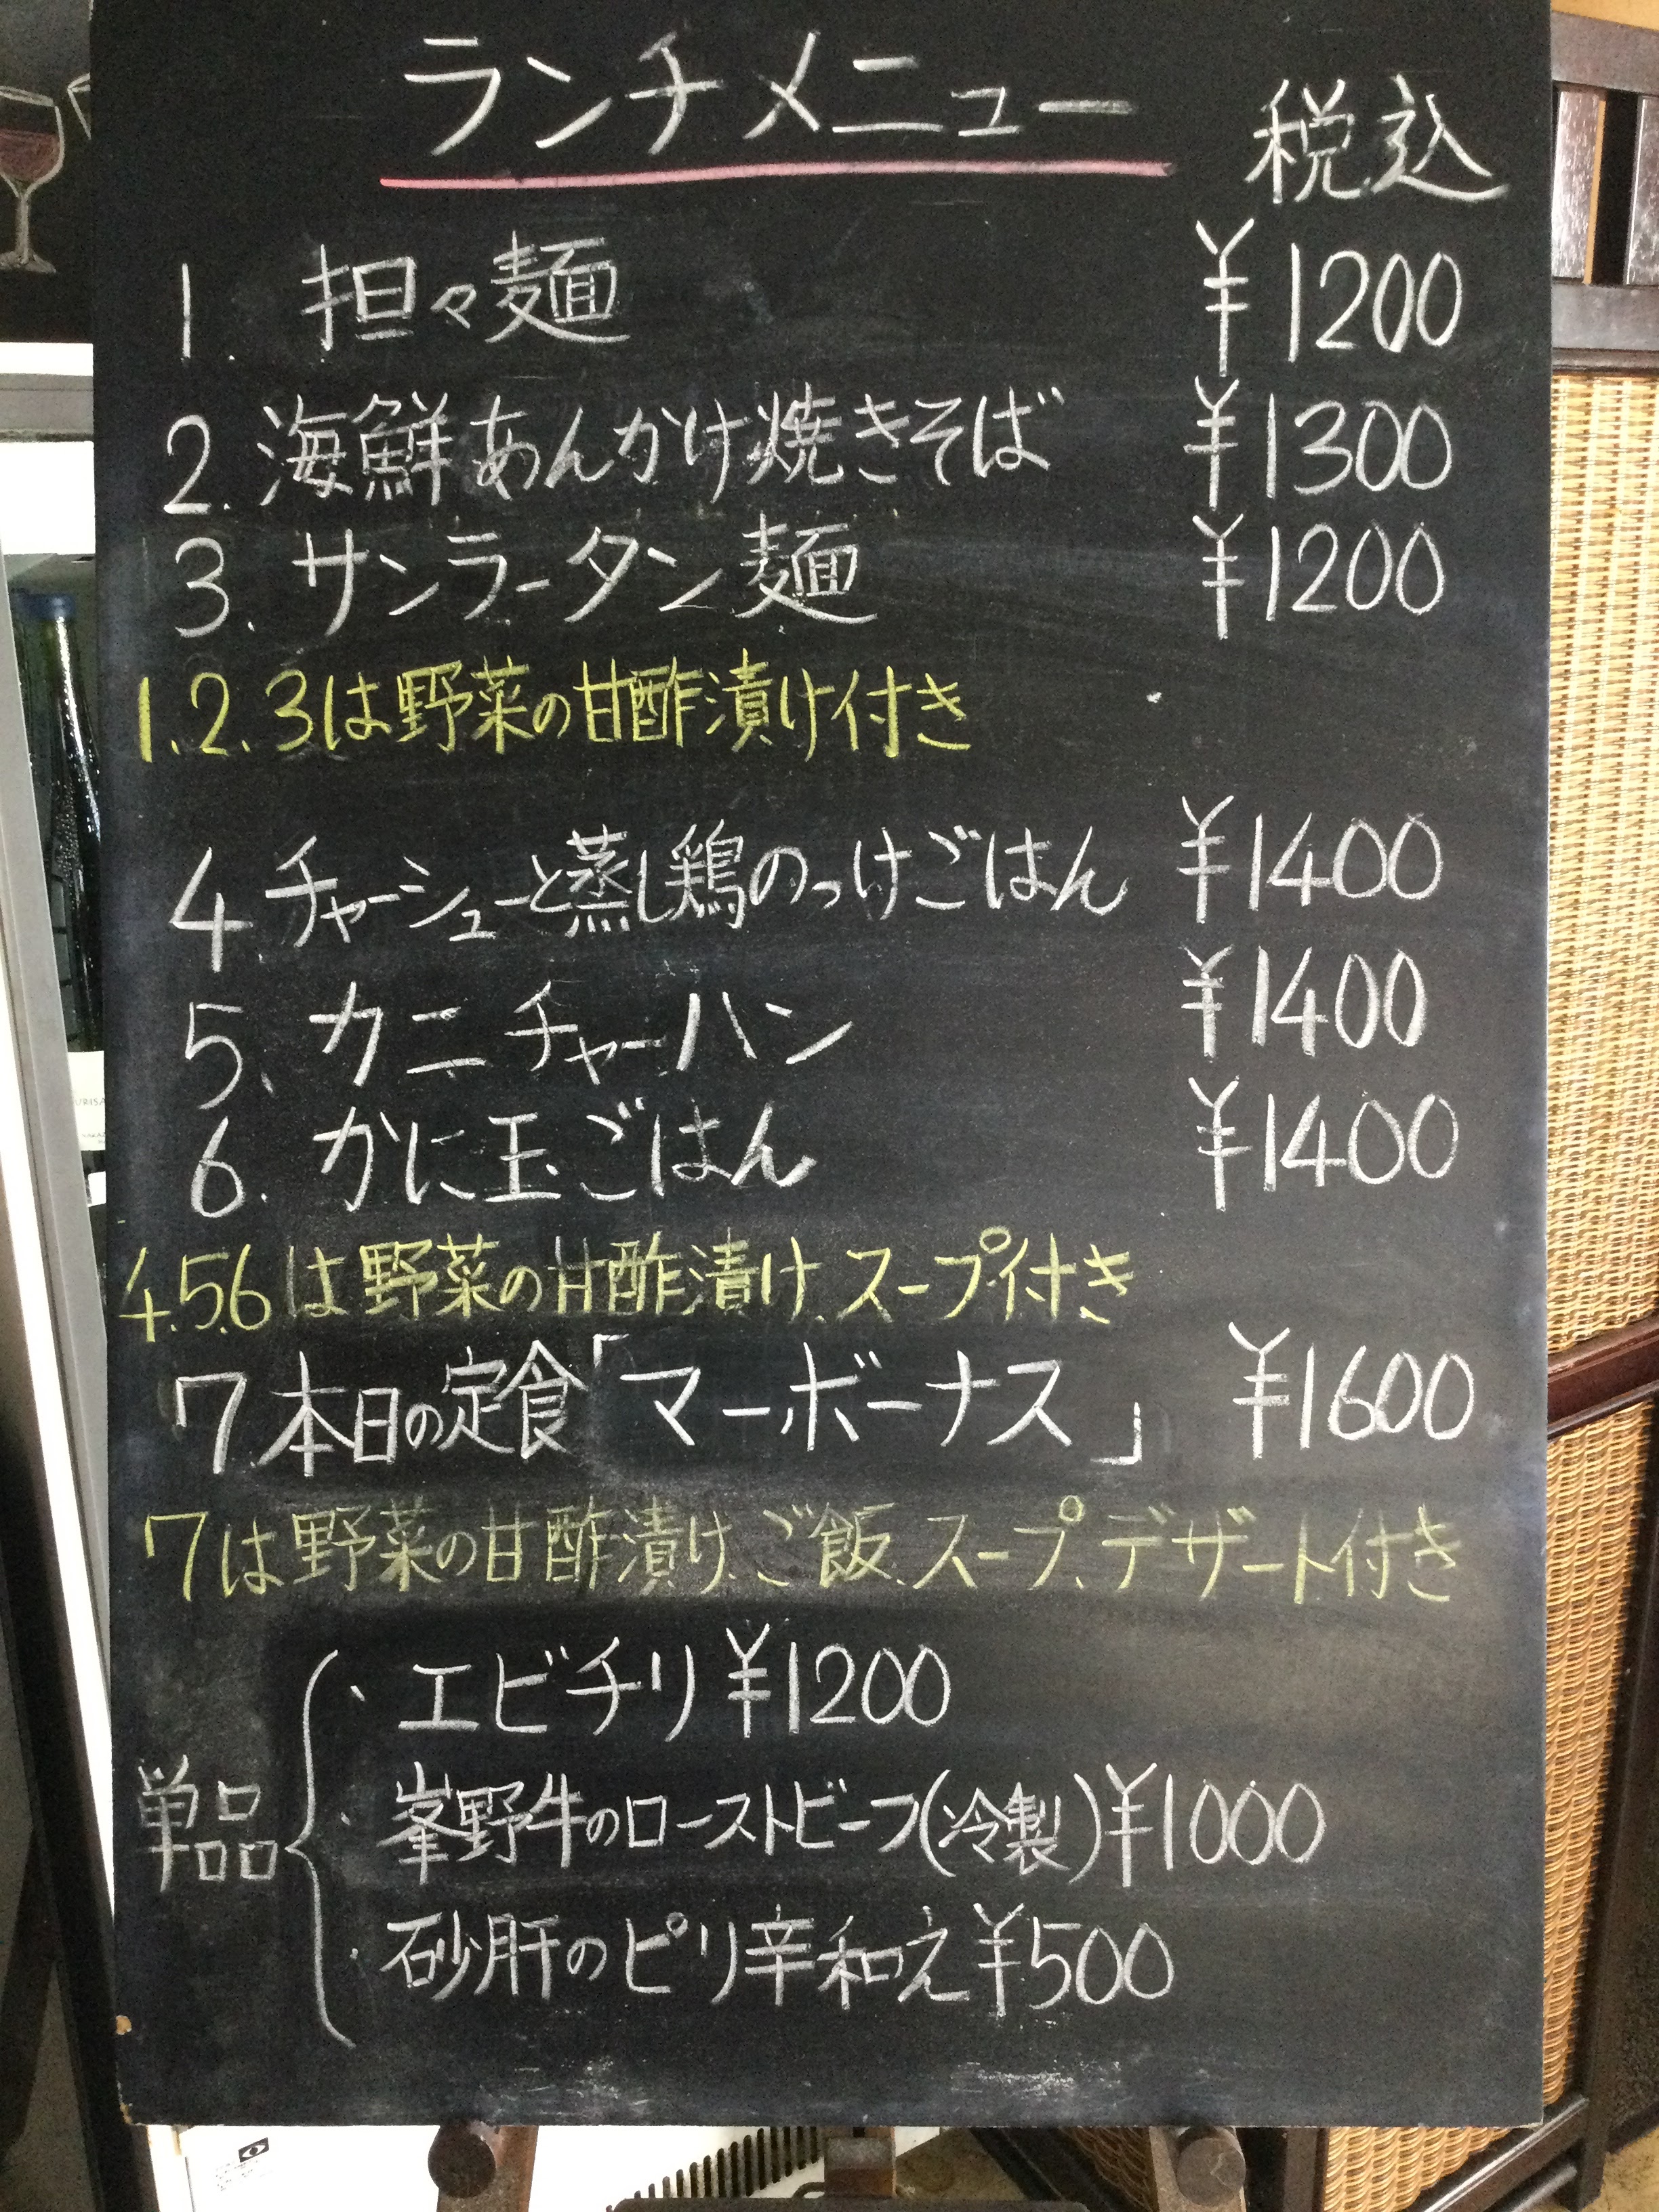 ランチメニュー 税込
1. 担々麺 ¥1200
2. 海鮮あんかけ焼きそば ¥1300
3. サンラータン麺 ¥1200
1.2.3は野菜の甘酢漬け付き
4 チャーシューと蒸し鶏のっけごはん ¥1400
5、カニチャーハン ¥1400
6. かに玉ごはん ¥1400
4.5.6は野菜の甘酢漬け、スープ付き
7 本日の定食「マーボーナス」 ¥1600
7は野菜の甘酢漬け、ご飯、スープ、デザート付き
単品
・エビチリ ¥1200
・峯野牛のローストビーフ(冷製) ¥1000
・砂肝のピリ辛和え ¥500